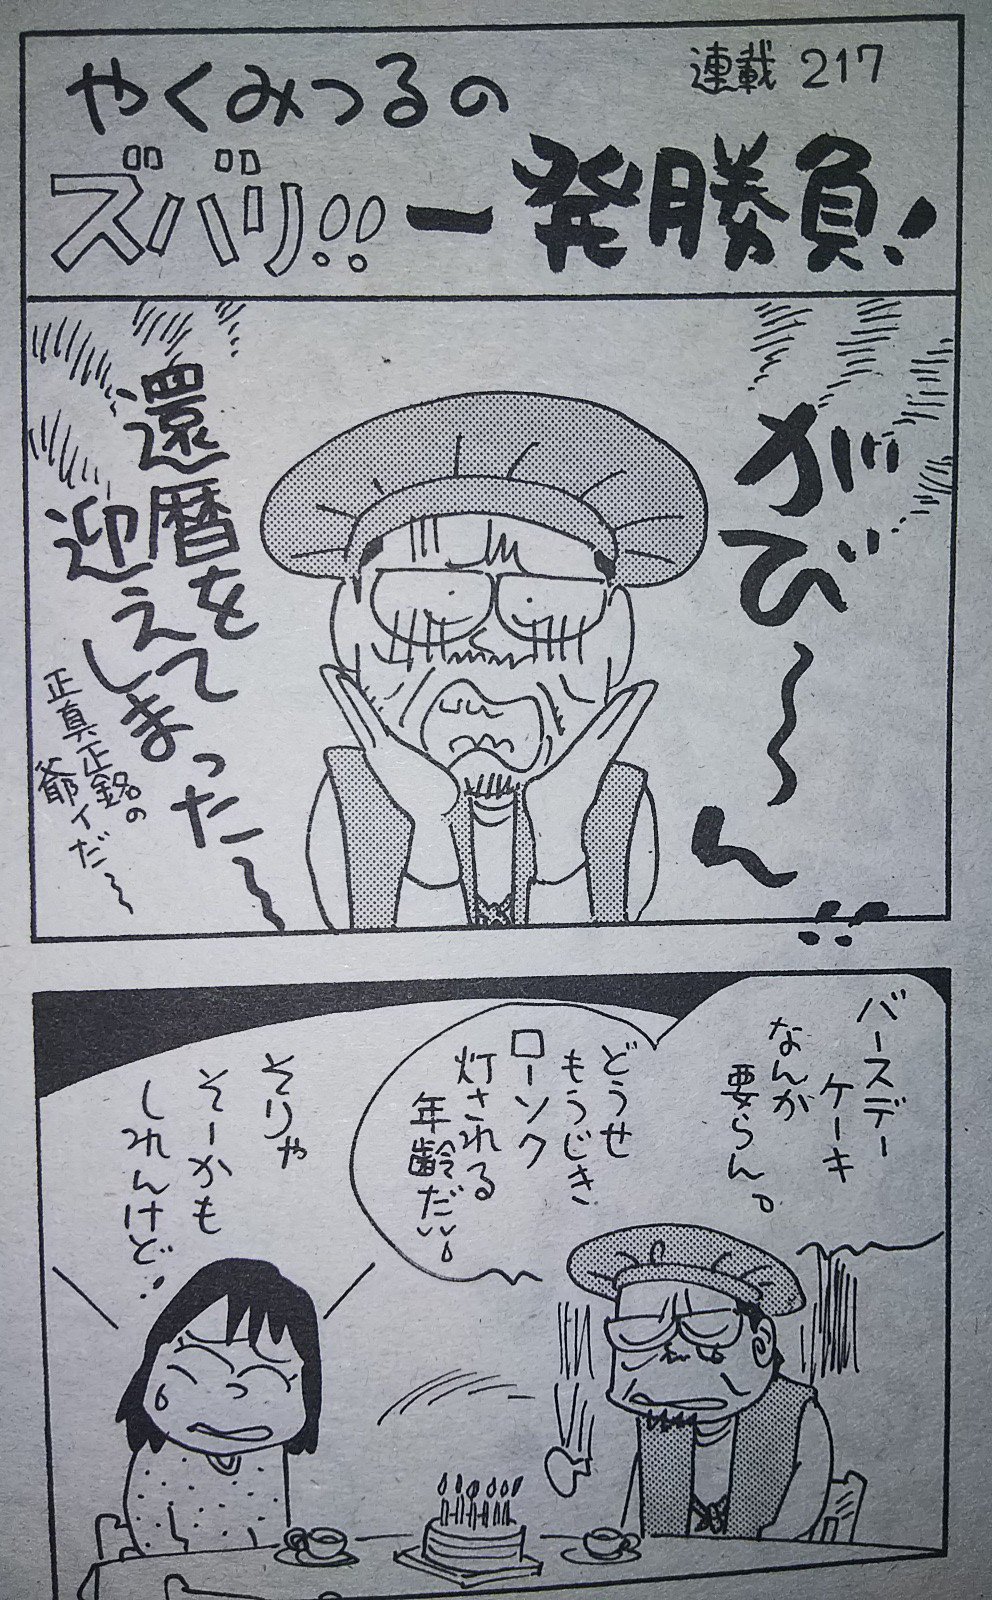 連載 217
やくみつるの
ズバリ!!一発勝負!
がび〜〜ん!!
還暦を
迎えて
しまった〜
正真正銘の
爺ィだ〜
バースデー
ケーキ
なんか
要らん。
どうせ
もうじき
ローソク
灯される
年齢だ!!
そりゃ
そーかも
しれんけど…